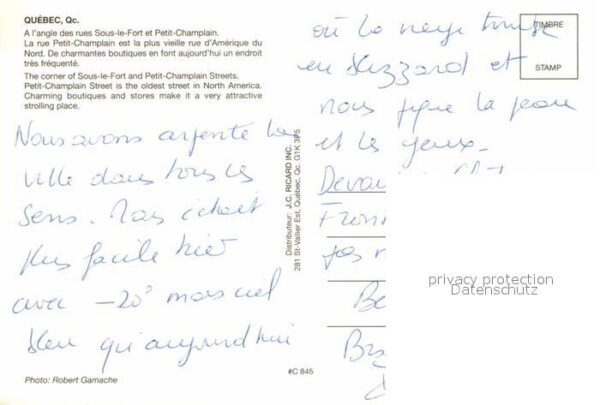 QUÉBEC, Qc.
A l'angle des rues Sous-le-Fort et Petit-Champlain.
La rue Petit-Champlain est la plus vieille rue d'Amérique du
Nord. De charmantes boutiques en font aujourd'hui un endroit
très fréquenté.
The corner of Sous-le-Fort and Petit-Champlain Streets.
Petit-Champlain Street is the oldest street in North America.
Charming boutiques and stores make it a very attractive
strolling place.
Nous avons arpenté la
ville dans tous les
sens. Mais c'était
plus facile hier
avec -20° mais ciel
bleu qu'aujourd'hui
Photo: Robert Gamache
Distributeur: J.C. RICARD INC.
281 St-Vallier Est, Québec, Qc. G1K 3P5
#C 845
TIMBRE
STAMP
où la neige tombe
en blizzard et
nous pique la peau
et les yeux.
pas
privacy protection
Datenschutz